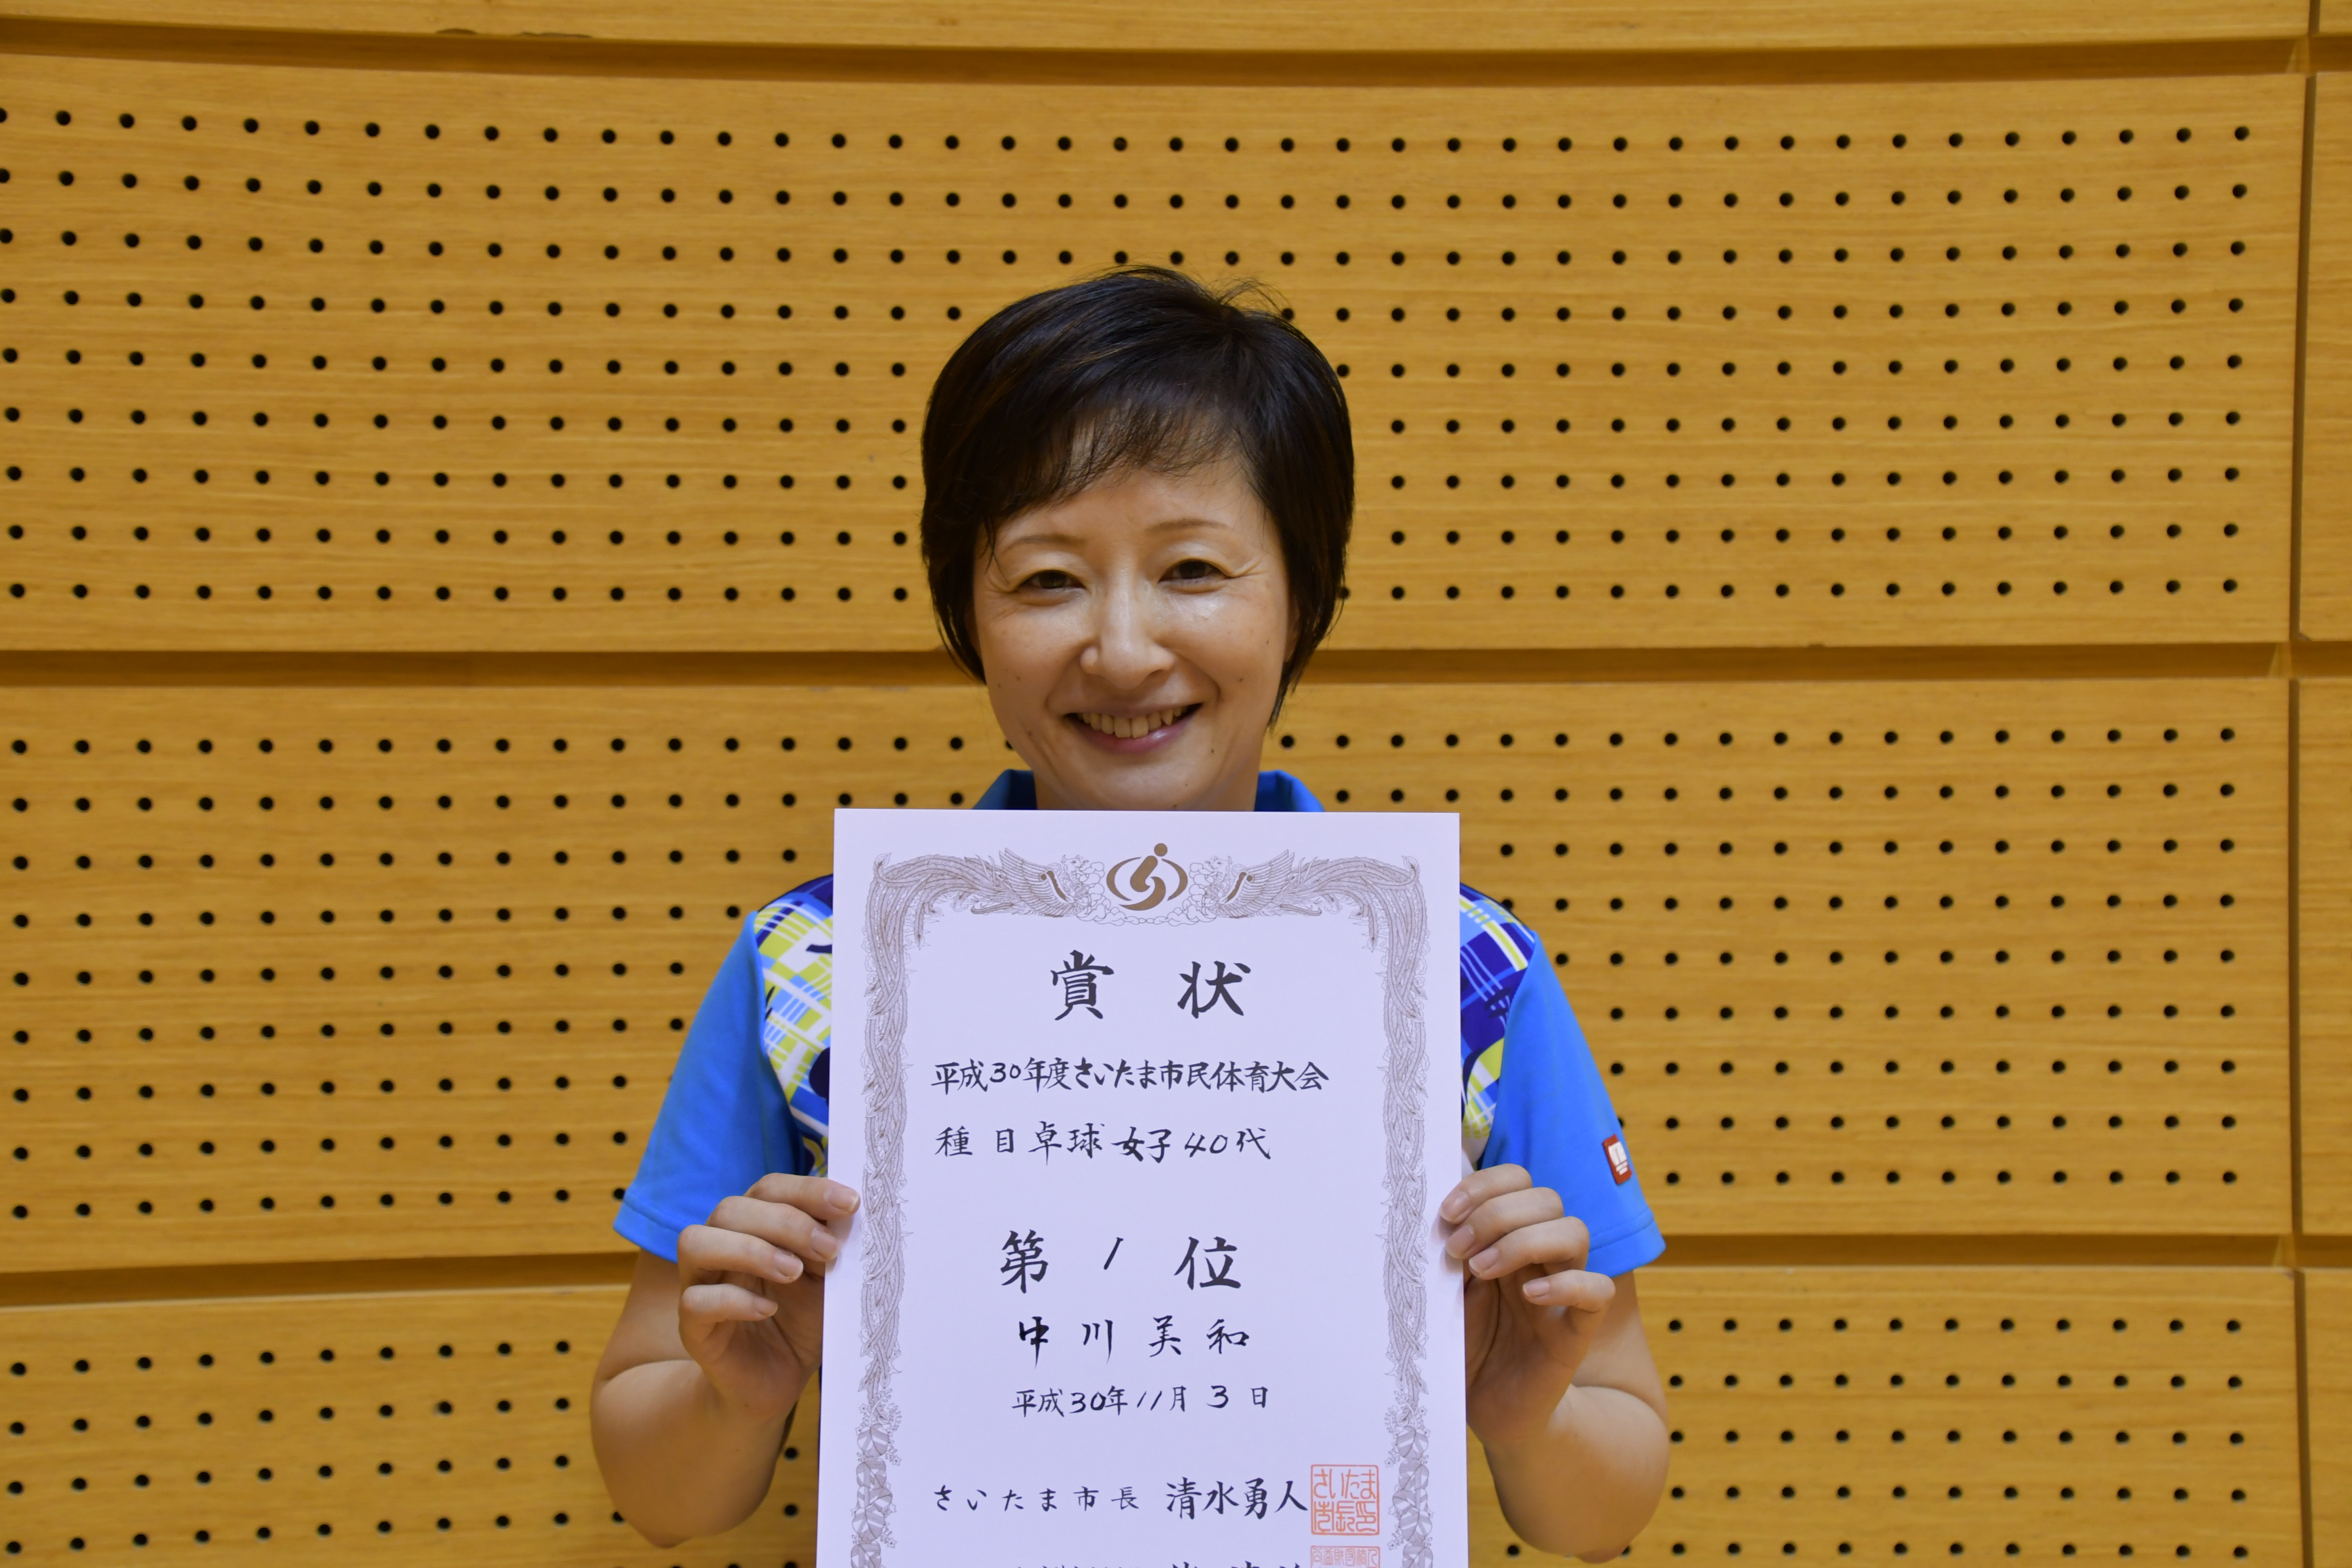 賞状
平成30年度さいたま市民体育大会
種目卓球女子40代
第1位
中川美和
平成30年11月3日
さいたま市長 清水勇人
さいたま市長之印